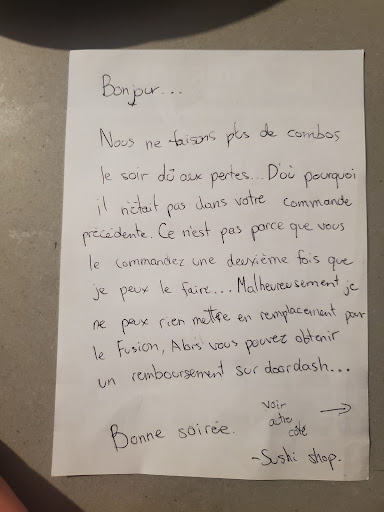 Bonjour...
Nous ne faisons plus de combos
le soir dû aux pertes... D'où pourquoi
il n'était pas dans votre commande
précédente. Ce n'est pas parce que vous
le commandez une deuxième fois que
je peux le faire... Malheureusement je
ne peux rien mettre en remplacement pour
le Fusion, Alors vous pouvez obtenir
un remboursement sur doordash...
Bonne soirée.
voir
autre
côté
→
-Sushi shop.